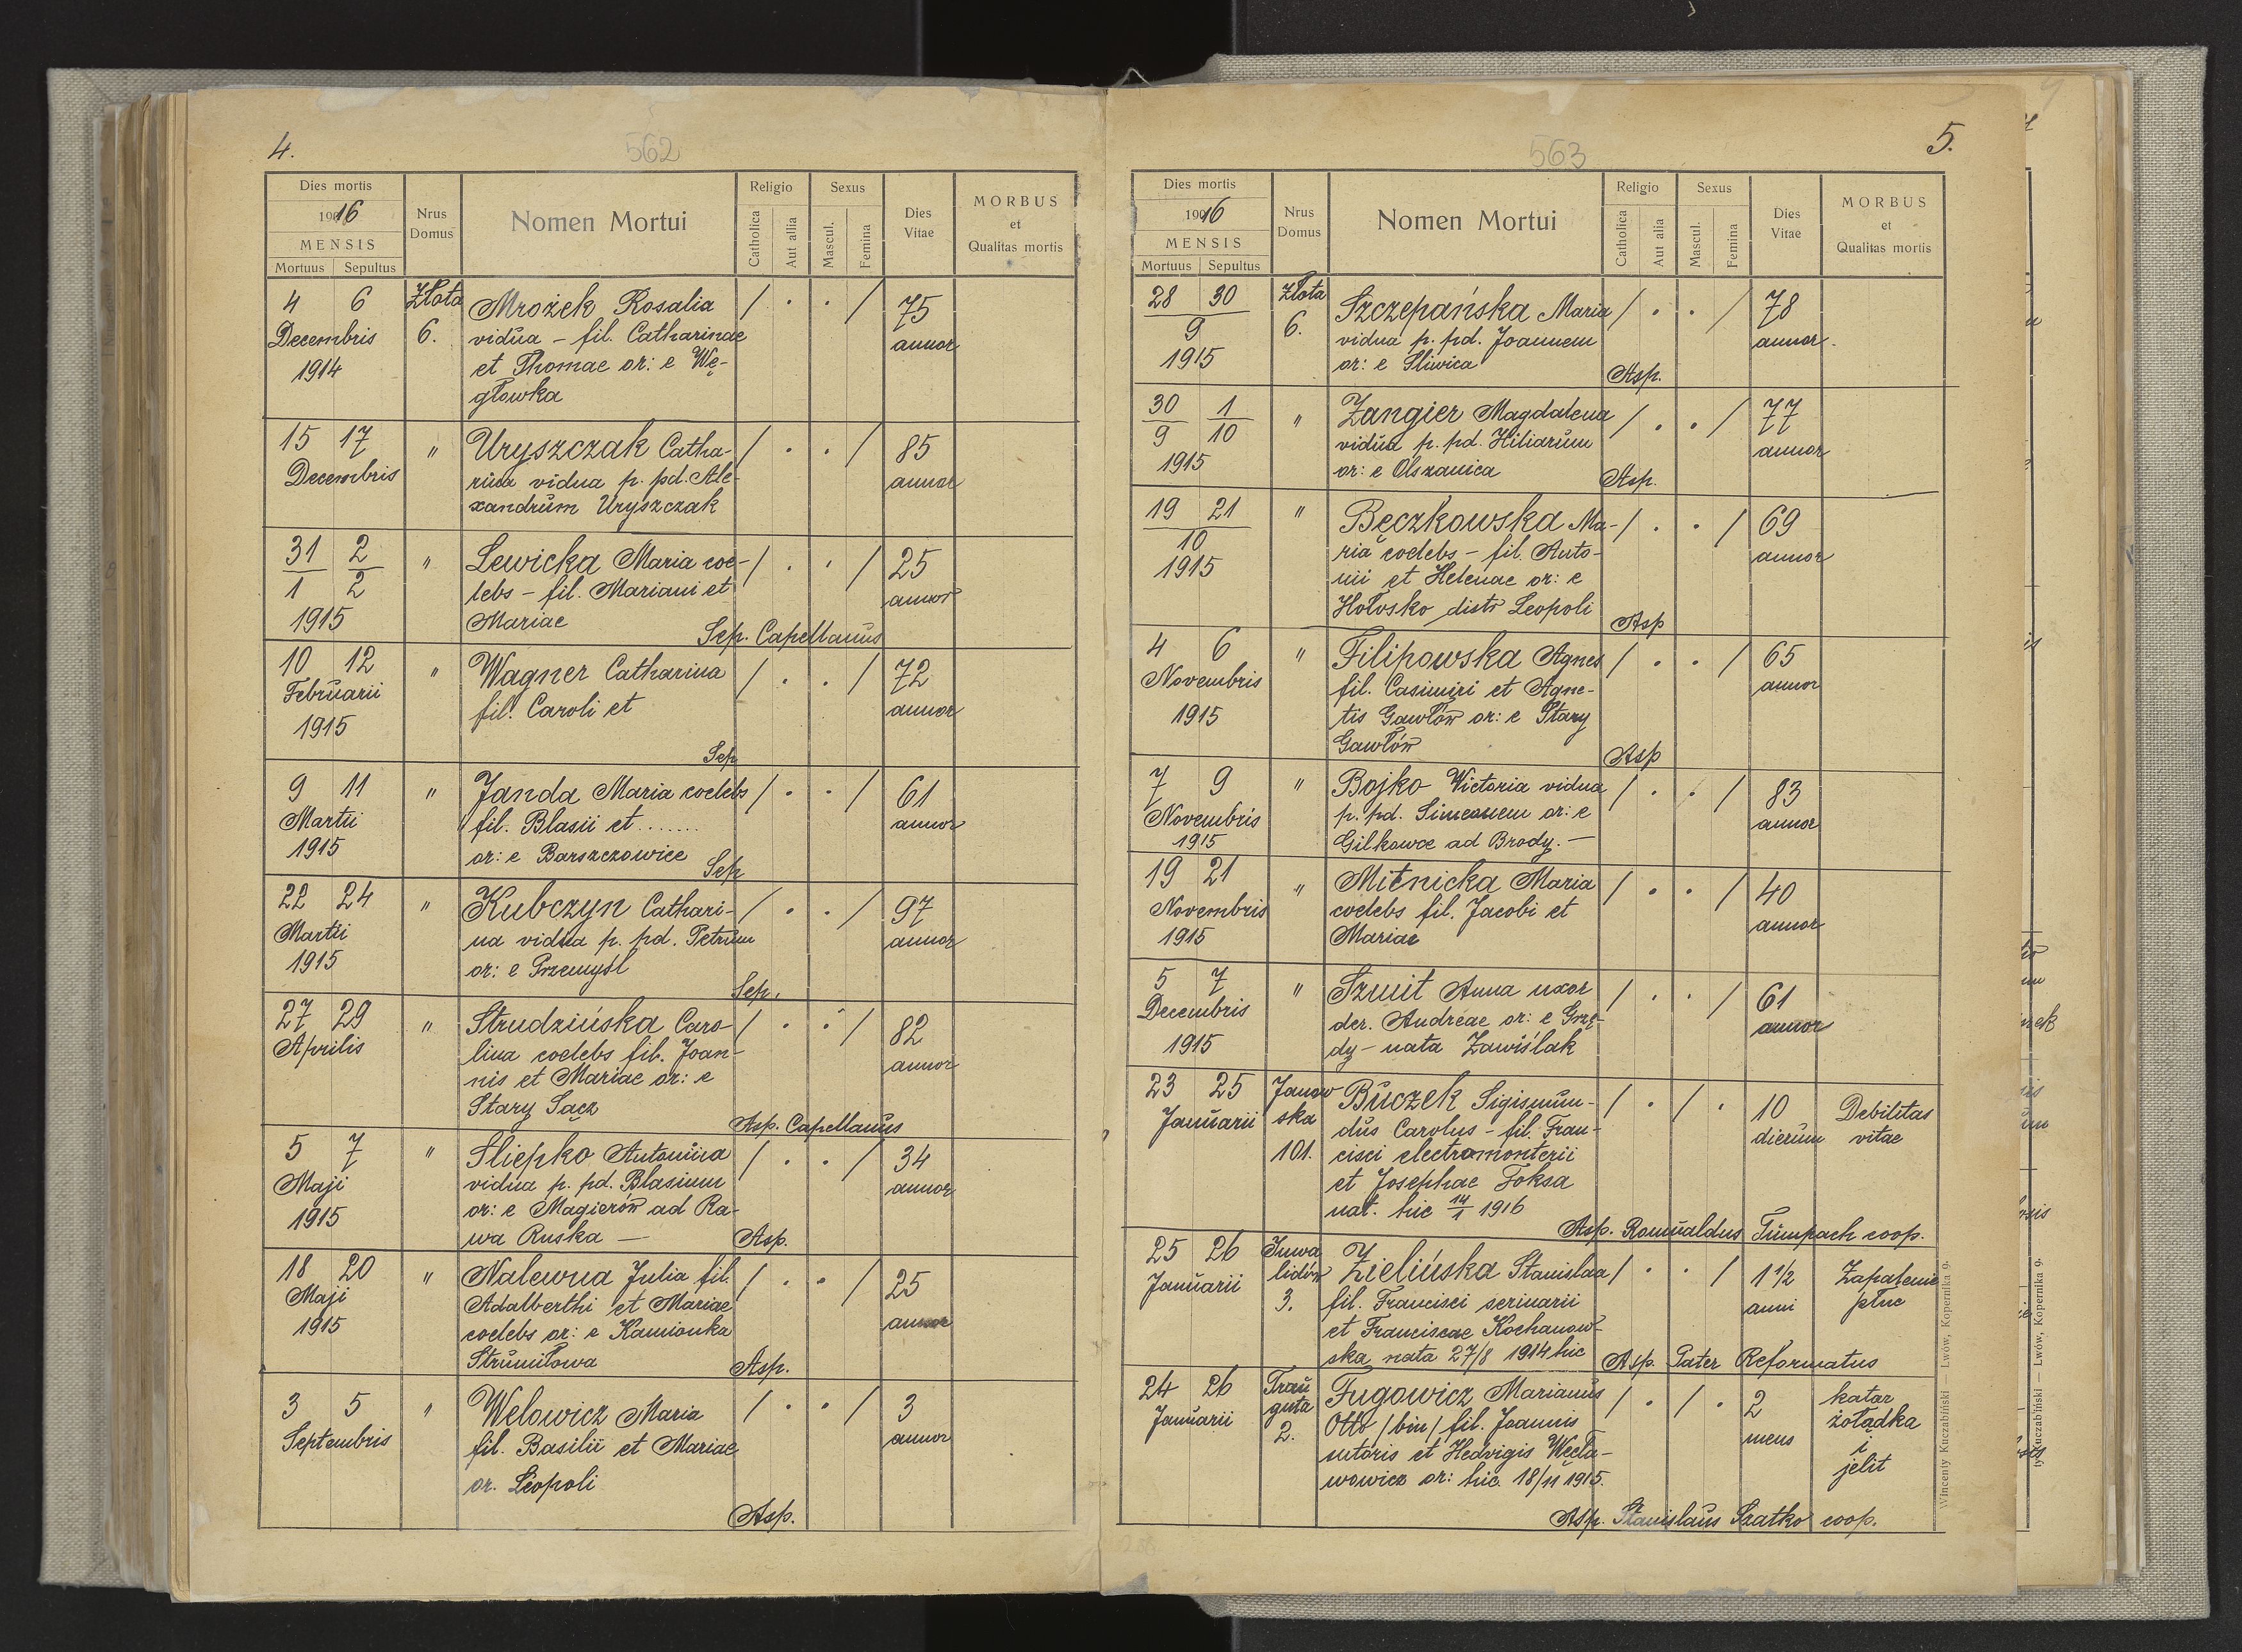 4.
562
Dies mortis
1916
MENSIS
Mortuus Sepultus
Nrus Domus
Nomen Mortui
Religio
Catholica
Aut allia
Sexus
Mascul.
Femina
Dies Vitae
MORBUS
et
Qualitas mortis
4 6 Złota Mrożek Rosalia / . . / 75
Decembris 6. vidua - fil. Catharinae annor
1914 et Thomae or: e Wę-
głowka
15 17 " Uryszczak Catha- / . . / 85
Decembris rina vidua p. pd. Ale- annor
xandrum Uryszczak
31 2 " Lewicka Maria coe- / . . / 25
1 2 lebs - fil. Mariani et annor
1915 Mariae
Sep. Capellanus
10 12 " Wagner Catharina / . . / 72
Februarii fil. Caroli et annor
1915
Sep
9 11 " Janda Maria coelebs / . . / 61
Martii fil. Blasii et ....... annor
1915 or: e Barszczowice
Sep
22 24 " Kubczyn Cathari- / . . / 97
Martii na vidua p. pd. Petrum annor
1915 or: e Przemyśl
Sep.
27 29 " Strudzińska Caro- / . . / 82
Aprilis lina coelebs fil. Joan- annor
nis et Mariae or: e
Stary Sącz
Asp. Capellanus
5 7 " Sliepko Antonina / . . / 34
Maji vidua p. pd. Blasium annor
1915 or: e Magierów ad Ra-
wa Ruska —
Asp.
18 20 " Nalewna Julia fil. / . . / 25
Maji Adalberthi et Mariae annor
1915 coelebs or: e Kamionka
Strumiłowa
Asp.
3 5 " Welowicz Maria / . . / 3
Septembris fil. Basilii et Mariae annor
or. Leopoli
Asp.
563
5.
Dies mortis
190 16
MENSIS
Mortuus Sepultus
Nrus Domus
Nomen Mortui
Religio
Catholica
Aut alia
Sexus
Mascul.
Femina
Dies Vitae
MORBUS
et
Qualitas mortis
28 30 Złota Szczepańska Maria / . . / 78
9 6. vidua p. pd. Joannem annor
1915 or: e Sliwica
Asp.
30 1 " Zangier Magdalena / . . / 77
9 10 vidua p. pd. Hiliarum annor
1915 or: e Olszanica
Asp.
19 21 " Bęczkowska Ma- / . . / 69
10 ria coelebs - fil. Anto- annor
1915 nii et Helenae or: e
Hołosko distr Leopoli
Asp
4 6 " Filipowska Agnes / . . / 65
Novembris fil. Casimiri et Agne- annor
1915 tis Gawłów or: e Stary
Gawłów
Asp
7 9 " Bojko Wictoria vidua / . . / 83
Novembris p. pd. Simeonem or: e annor
1915 Gilkowce ad Brody. —
19 21 " Mitnicka Maria / . . / 40
Novembris coelebs fil. Jacobi et annor
1915 Mariae
5 7 " Szmit Anna uxor / . . / 61
Decembris der. Andreae or: e Grzę- annor
1915 dy - nata Zawiślak
23 25 Janow Buczek Sigismun- / . / . 10 Debilitas
Januarii ska dus Carolus - fil. Fran- dierum vitae
101. cisci electromonterii
et Josephae Foksa
nat. hic 14/1 1916
Asp. Romualdus Tumpach coop.
25 26 Inwa Zielińska Stanislaa / . . / 1 1/2 Zapalenie
Januarii lidów fil. Francisci scrinarii anni płuc
3. et Franciscae Kochanow-
ska nata 27/8 1914 hic
Asp. Pater Reformatus
24 26 Trau Fugowicz Marianus / . / . 2 katar
Januarii guta Otto /bin/ fil. Joannis mens żołądka
2. sutoris et Hedvigis Węcła- i
wowicz or: hic. 18/11 1915. jelit
Asp. Stanislaus Szatko coop.
Wincenty Kuczabiński — Lwów, Kopernika 9.
Kuczabiński — Lwów, Kopernika 9.